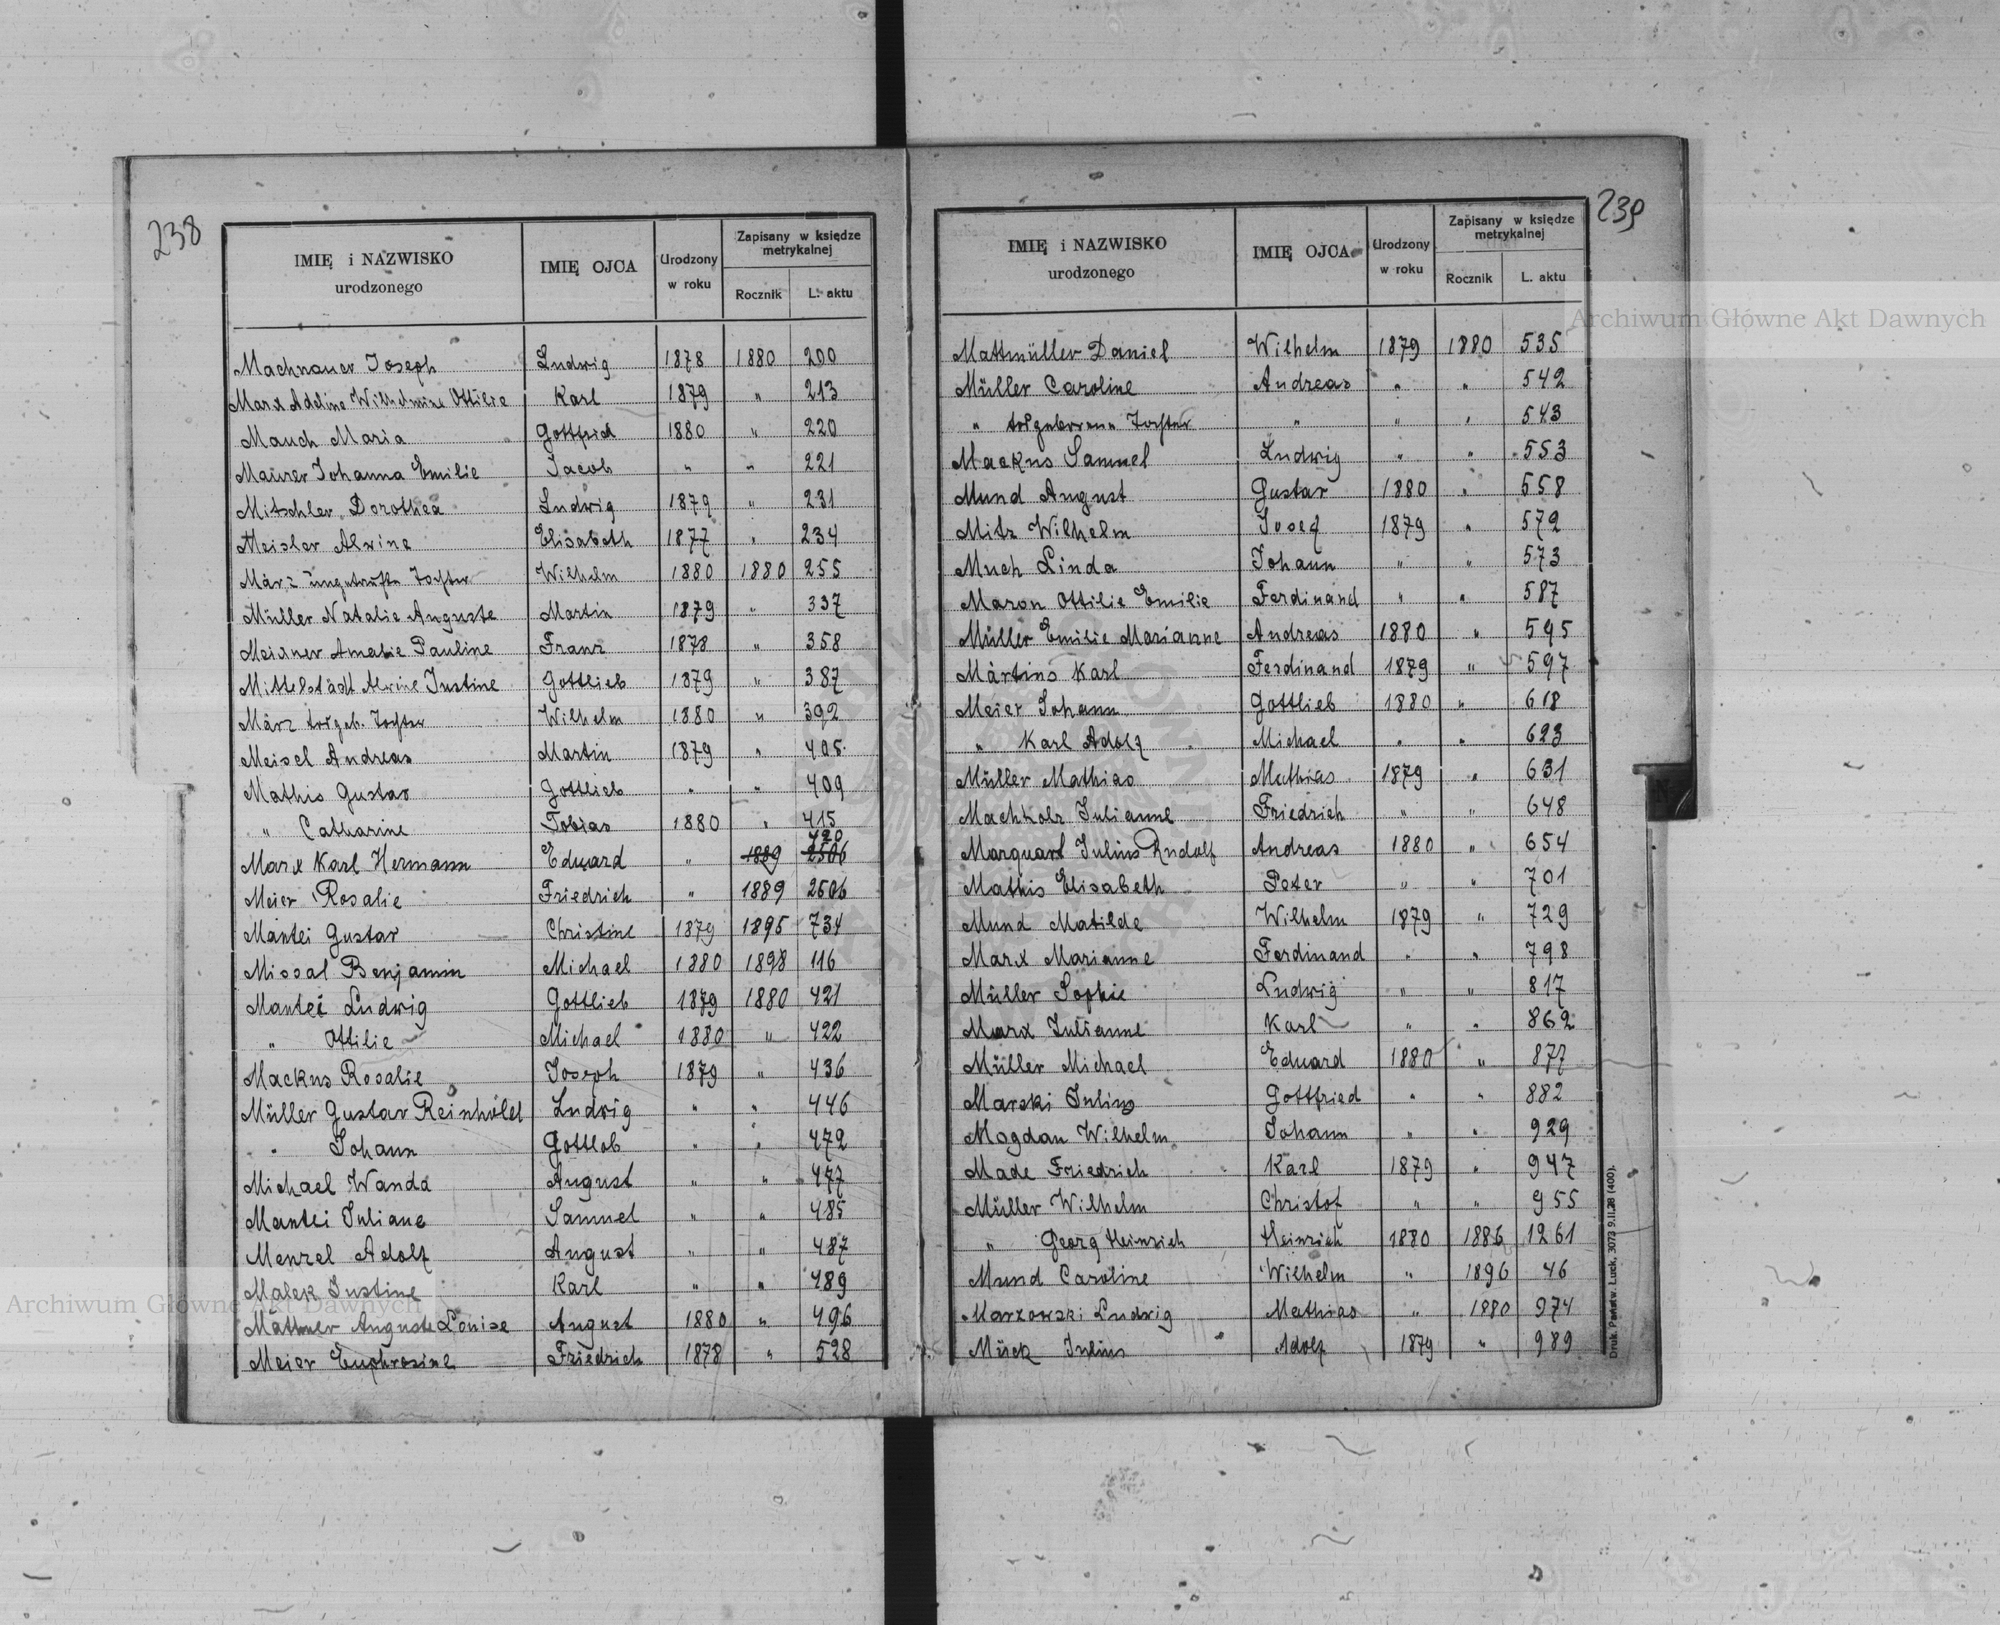 238
IMIĘ i NAZWISKO urodzonego | IMIĘ OJCA | Urodzony w roku | Zapisany w księdze metrykalnej
Rocznik | L. aktu
Machnauer Joseph | Ludwig | 1878 | 1880 | 200
Marx Adeline Wilhelmine Ottilie | Karl | 1879 | " | 213
Mauch Maria | Gottfried | 1880 | " | 220
Maurer Johanna Emilie | Jacob | " | " | 221
Mitschler Dorothea | Ludwig | 1879 | " | 231
Meisler Alwine | Elisabeth | 1877 | " | 234
März ungetaufte Tochter | Wilhelm | 1880 | 1880 | 255
Müller Natalie Auguste | Martin | 1879 | " | 337
Meixner Amalie Pauline | Franz | 1878 | " | 358
Mittelstädt Alwine Justine | Gottlieb | 1879 | " | 387
März totgeb. Tochter | Wilhelm | 1880 | " | 392
Meisel Andreas | Martin | 1879 | " | 405
Mathis Gustav | Gottlieb | " | " | 409
" Catharine | Tobias | 1880 | " | 415
420
Marx Karl Hermann | Eduard | " | 1889 | 2506
Meier Rosalie | Friedrich | " | 1889 | 2506
Mantei Gustav | Christine | 1879 | 1895 | 734
Missal Benjamin | Michael | 1880 | 1898 | 116
Mantei Ludwig | Gottlieb | 1879 | 1880 | 421
" Ottilie | Michael | 1880 | " | 422
Mackus Rosalie | Joseph | 1879 | " | 436
Müller Gustav Reinhold | Ludwig | " | " | 446
" Johann | Gottlob | " | " | 472
Michael Wanda | August | " | " | 477
Mantei Juliane | Samuel | " | " | 485
Menzel Adolf | August | " | " | 487
Malek Justine | Karl | " | " | 489
Mattner Auguste Louise | August | 1880 | " | 496
Meier Euphrosine | Friedrich | 1878 | " | 528
239
IMIĘ i NAZWISKO urodzonego | IMIĘ OJCA | Urodzony w roku | Zapisany w księdze metrykalnej
Rocznik | L. aktu
Mattmüller Daniel | Wilhelm | 1879 | 1880 | 535
Müller Caroline | Andreas | " | " | 542
" totgeborene Tochter | " | " | " | 543
Mackus Samuel | Ludwig | " | " | 553
Mund August | Gustav | 1880 | " | 558
Mitz Wilhelm | Josef | 1879 | " | 572
Much Linda | Johann | " | " | 573
Maron Ottilie Emilie | Ferdinand | " | " | 587
Müller Emilie Marianne | Andreas | 1880 | " | 595
Martins Karl | Ferdinand | 1879 | " | 597
Meier Johann | Gottlieb | 1880 | " | 618
" Karl Adolf | Michael | " | " | 623
Müller Mathias | Mathias | 1879 | " | 631
Machholz Julianne | Friedrich | " | " | 648
Marquart Julius Rudolf | Andreas | 1880 | " | 654
Mathis Elisabeth | Peter | " | " | 701
Mund Matilde | Wilhelm | 1879 | " | 729
Marx Marianne | Ferdinand | " | " | 798
Müller Sophie | Ludwig | " | " | 817
Marx Julianne | Karl | " | " | 862
Müller Michael | Eduard | 1880 | " | 877
Marski Julius | Gottfried | " | " | 882
Mogdan Wilhelm | Johann | " | " | 929
Made Friedrich | Karl | 1879 | " | 947
Müller Wilhelm | Christof | " | " | 955
" Georg Heinrich | Heinrich | 1880 | 1886 | 1261
Mund Caroline | Wilhelm | " | 1896 | 46
Marzowski Ludwig | Mathias | " | 1880 | 974
Mück Julius | Adolf | 1879 | " | 989
Druk. Państw. Łuck, 3073 9.II.28 (400).
Archiwum Główne Akt Dawnych
Archiwum Główne Akt Dawnych